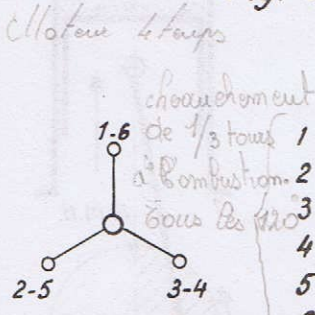 Moteur 4 temps
chevauchement
1-6
de 1/3 tours
1
à Combustion.
2
tous les 120°
3
4
2-5
3-4
5